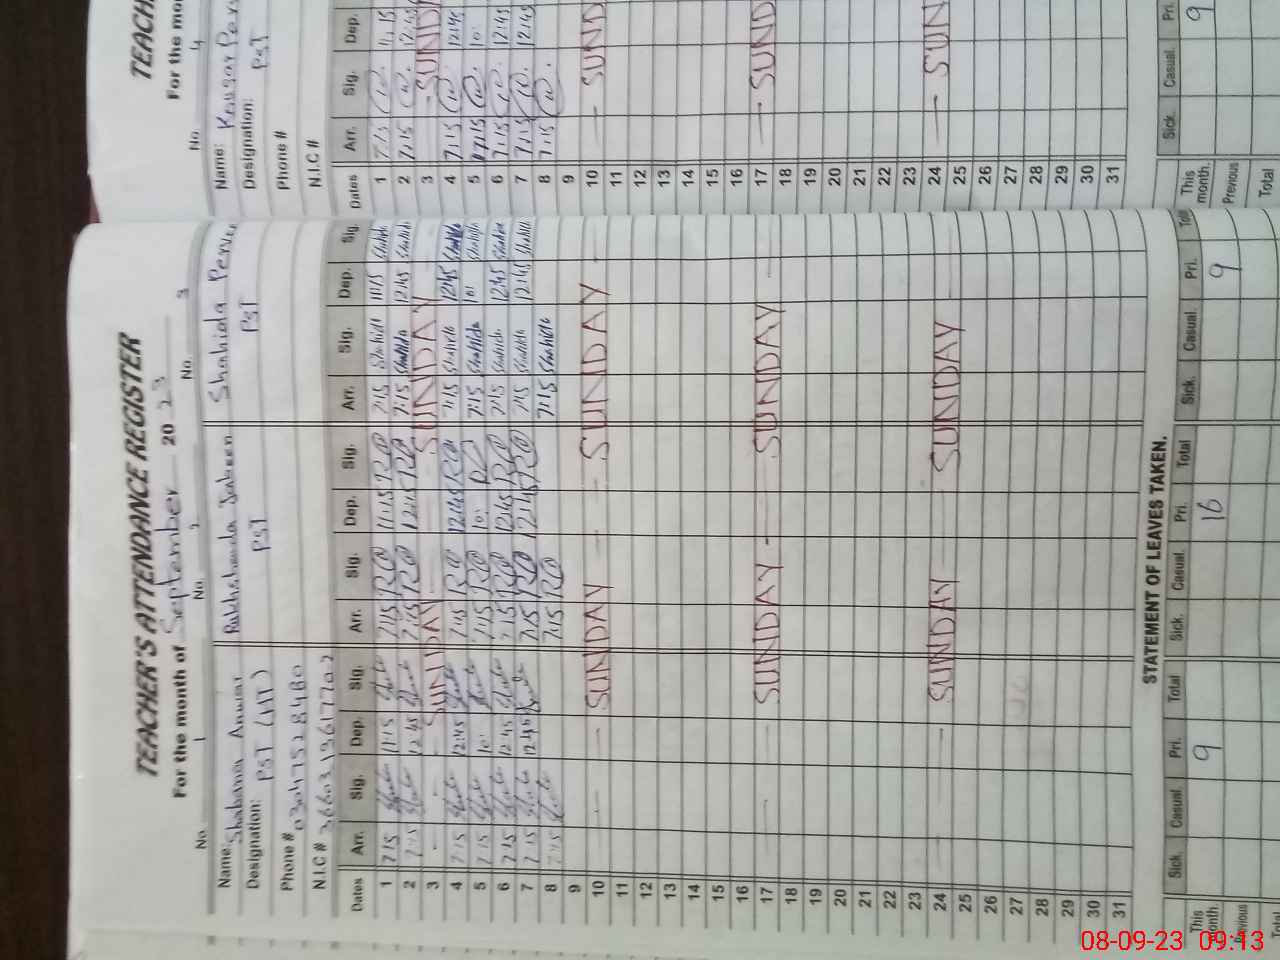 TEACHER'S ATTENDANCE REGISTER
For the month of September 2023
No. 1 No. 2 No. 3
Name: Shabana Anwar Rakhshanda Jabeen Shahida
Designation: PST (III) PST PST
Phone # 03047528480
N.I.C #
Dates Arr. Sig. Dep. Sig. Arr. Sig. Dep. Sig. Arr. Sig. Dep. Sig.
1 7:15 11:15 7:15 RQ 11:15 RQ 7:15 Shahida 11:15 Shahida
2 7:15 12:45 7:15 RQ 12:45 RQ 7:15 Shahida 12:45 Shahida
3 SUNDAY SUNDAY
4 7:15 12:45 7:15 RQ 12:45 RQ 7:15 Shahida 12:45 Shahida
5 7:15 10: 7:15 RQ 10: 7:15 Shahida 10: Shahida
6 7:15 12:45 7:15 RQ 12:45 RQ 7:15 Shahida 12:45 Shahida
7 7:15 12:45 7:15 RQ 12:45 RQ 7:15 Shahida 12:45 Shahida
8 7:15 7:15 RQ 7:15 Shahida
9
10 SUNDAY SUNDAY
11
12
13
14
15
16
17 SUNDAY SUNDAY
18
19
20
21
22
23
24 SUNDAY SUNDAY
25
26
27
28
29
30
31
STATEMENT OF LEAVES TAKEN.
Sick. Casual. Pri. Total Sick. Casual. Pri. Total Sick. Casual. Pri. Total
This month. 9 16 9
Previous
Total
TEACH
For the mo
No. 4
Name: Kausar
Designation: PST
Phone #
N.I.C #
Dates Arr. Sig. Dep.
1 7:15 11:15
2 7:15 12:45
3 SUND
4 7:15 12:45
5 7:15 10:
6 7:15 12:45
7 7:15 12:45
8 7:15
9
10 SUND
11
12
13
14
15
16
17 SUND
18
19
20
21
22
23
24 SUN
25
26
27
28
29
30
31
Sick. Casual. Pri.
This month. 9
Previous
Total
08-09-23 09:13